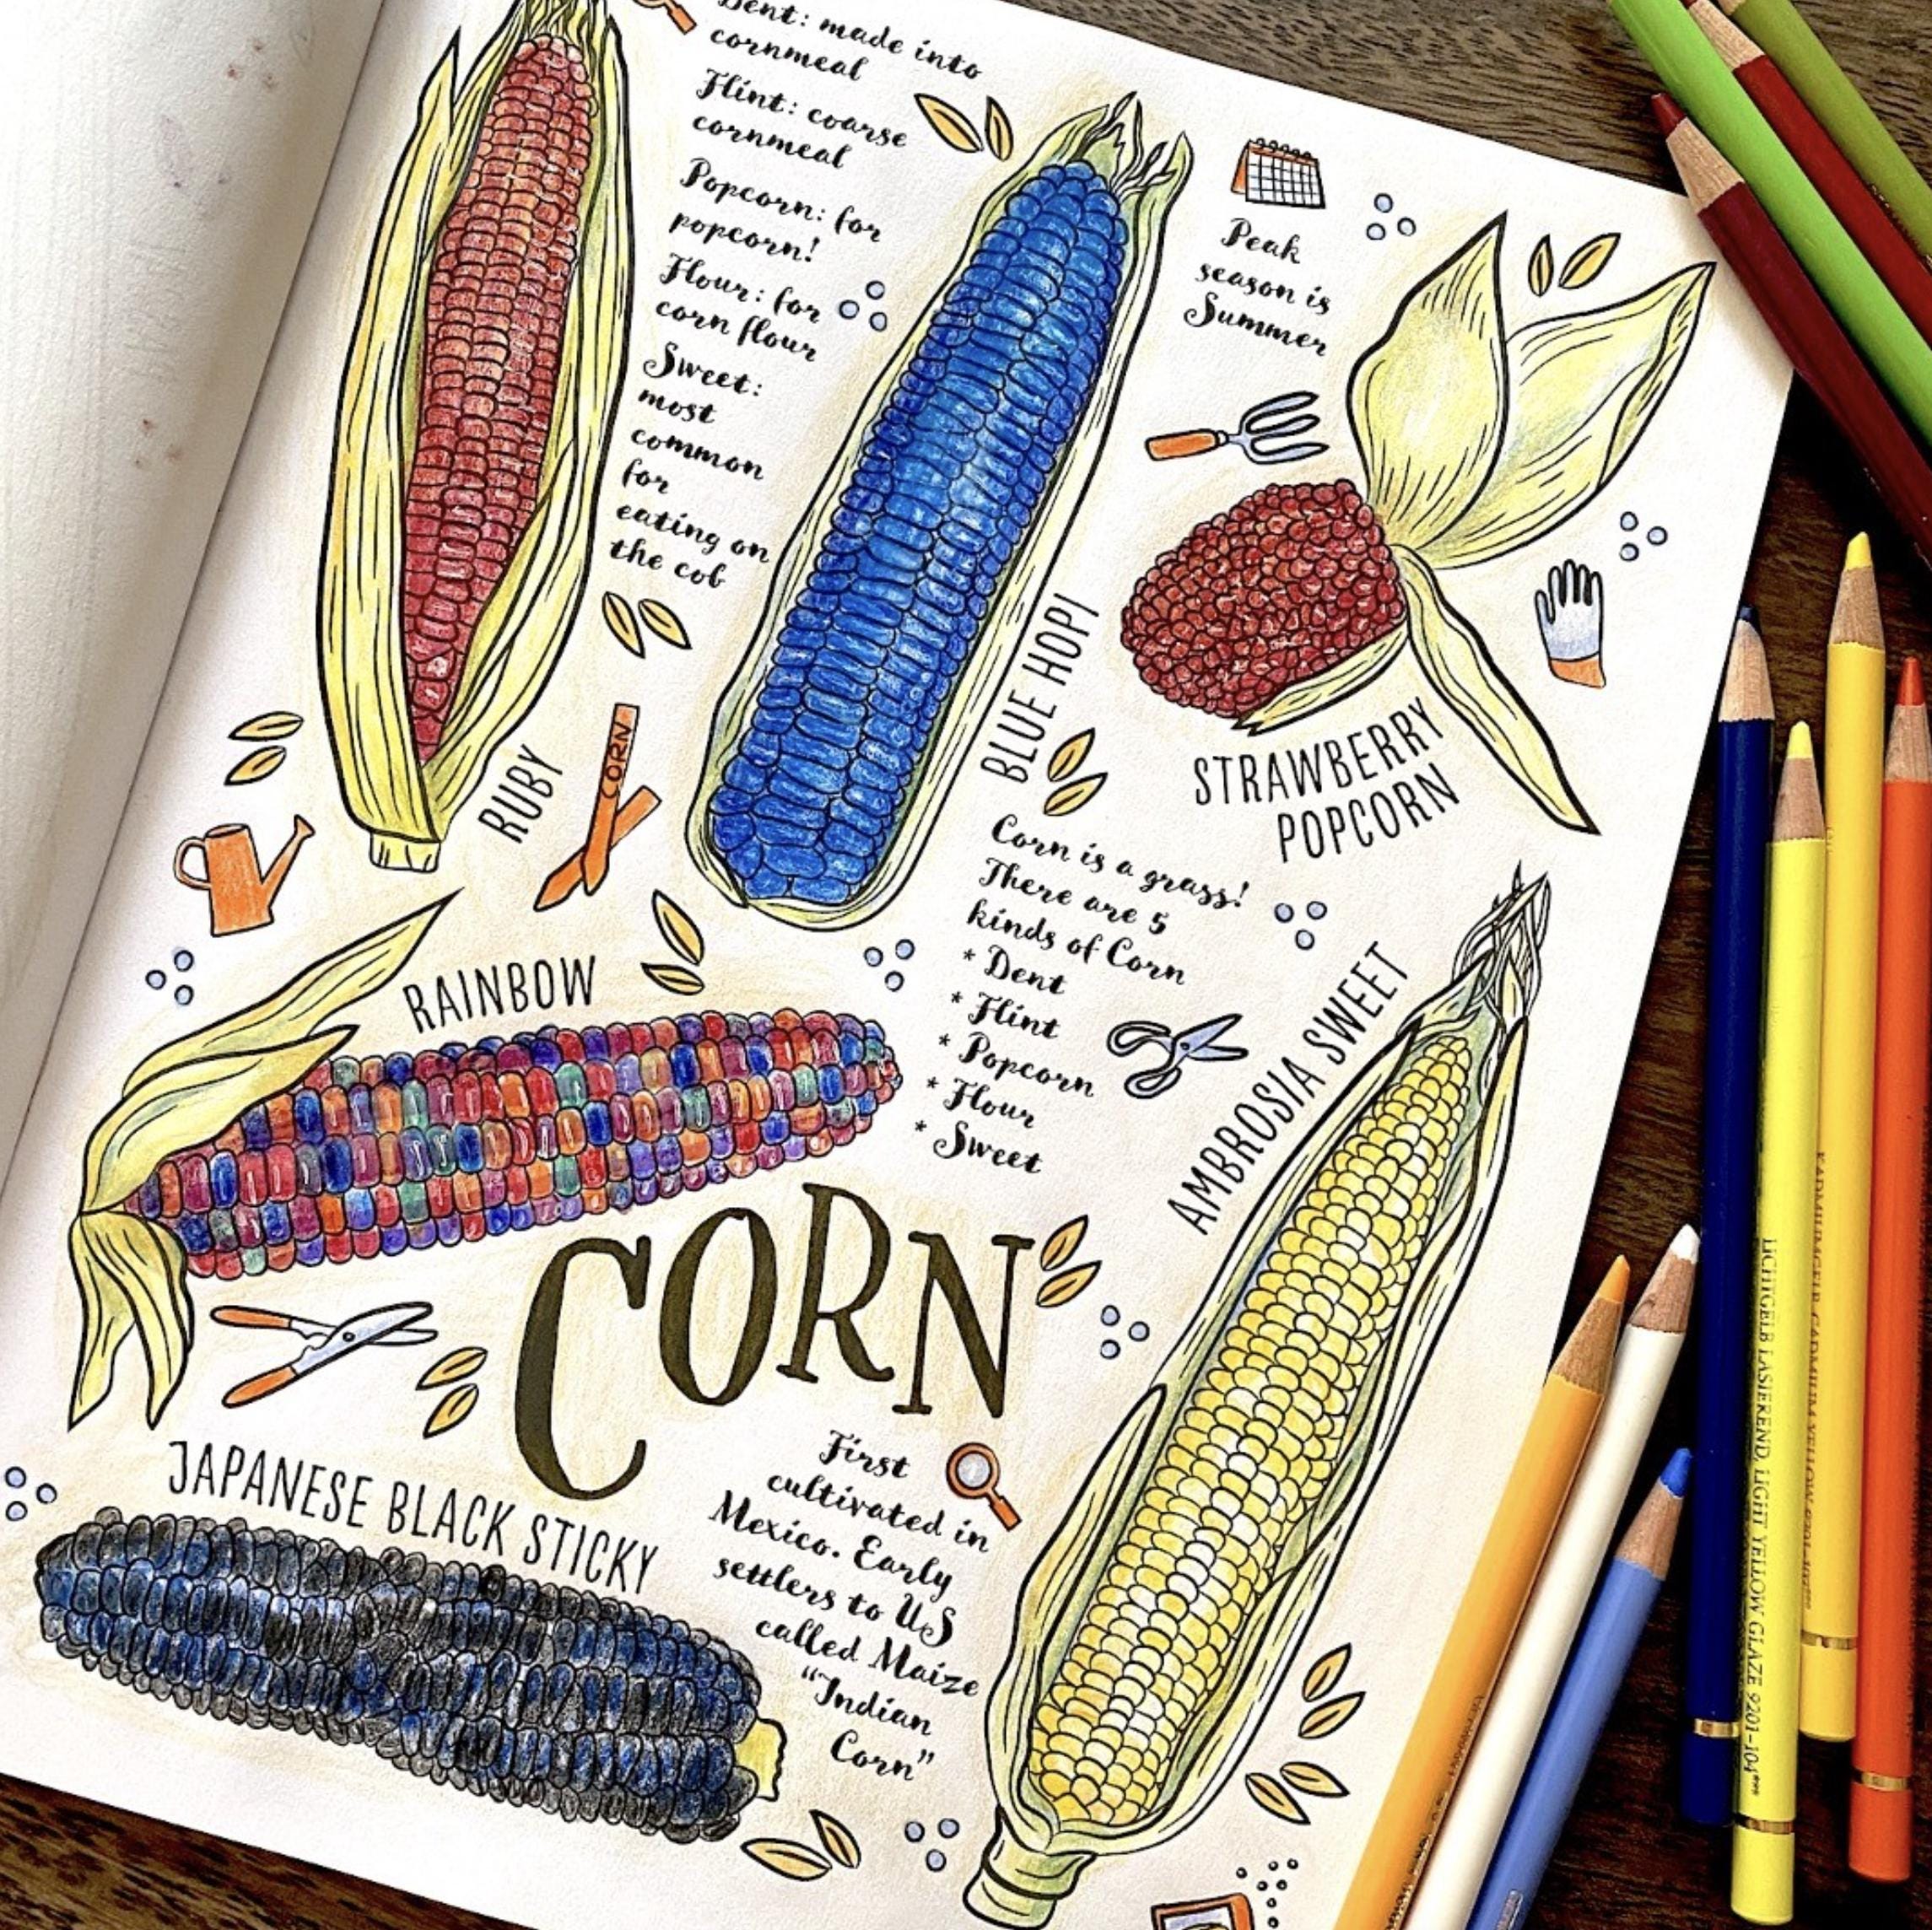 Dent: made into
cornmeal
Flint: coarse
cornmeal
Popcorn: for
popcorn!
Flour: for
corn flour
Sweet:
most
common
for
eating on
the cob
Peak
season is
Summer
RUBY
CORN
BLUE HOPI
STRAWBERRY
POPCORN
Corn is a grass!
There are 5
kinds of Corn
* Dent
* Flint
* Popcorn
* Flour
* Sweet
RAINBOW
AMBROSIA SWEET
CORN
JAPANESE BLACK STICKY
First
cultivated in
Mexico. Early
settlers to US
called Maize
“Indian
Corn”
LICHTGELB LASIEREND, LIGHT YELLOW GLAZE 9201-104***